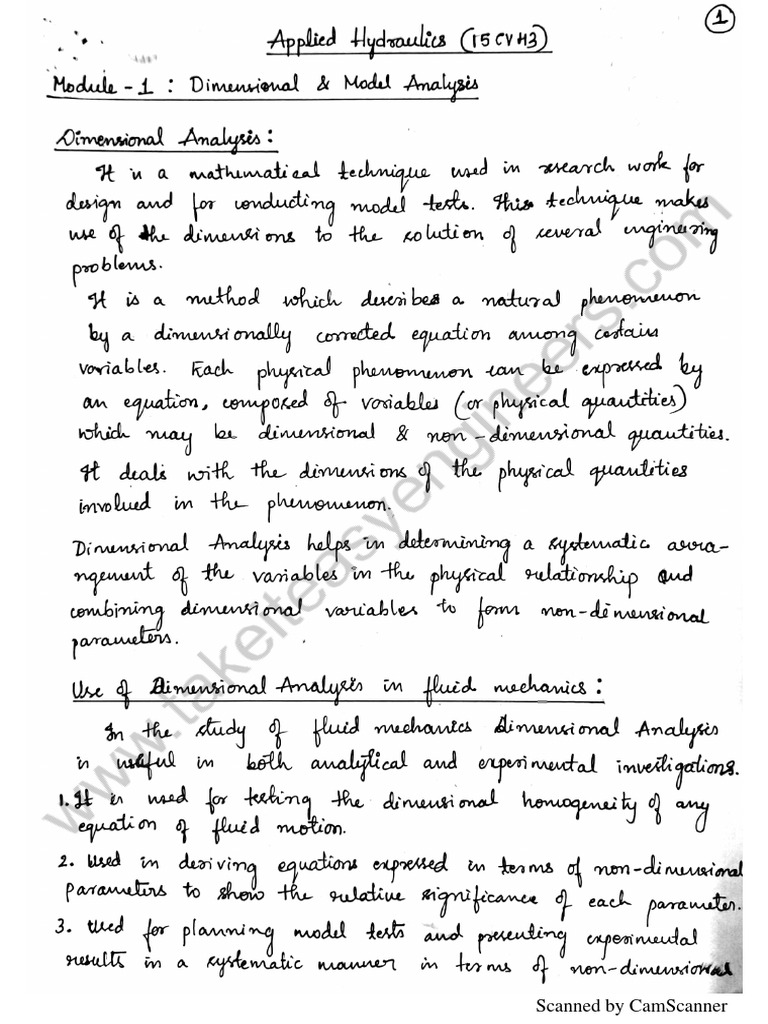 1
Applied Hydraulics (15CV43)
Module-1 : Dimensional & Model Analysis
Dimensional Analysis:
It is a mathematical technique used in research work for
design and for conducting model tests. This technique makes
use of the dimensions to the solution of several engineering
problems.
It is a method which describes a natural phenomenon
by a dimensionally corrected equation among certain
variables. Each physical phenomenon can be expressed by
an equation, composed of variables (or physical quantities)
which may be dimensional & non-dimensional quantities.
It deals with the dimensions of the physical quantities
involved in the phenomenon.
Dimensional Analysis helps in determining a systematic arra-
ngement of the variables in the physical relationship and
combining dimensional variables to form non-dimensional
parameters.
Use of Dimensional Analysis in fluid mechanics:
In the study of fluid mechanics Dimensional Analysis
is useful in both analytical and experimental investigations.
1. It is used for testing the dimensional homogeneity of any
equation of fluid motion.
2. Used in deriving equations expressed in terms of non-dimensional
parameters to show the relative significance of each parameter.
3. Used for planning model tests and presenting experimental
results in a systematic manner in terms of non-dimensional
www.takeiteasyengineers.com
Scanned by CamScanner